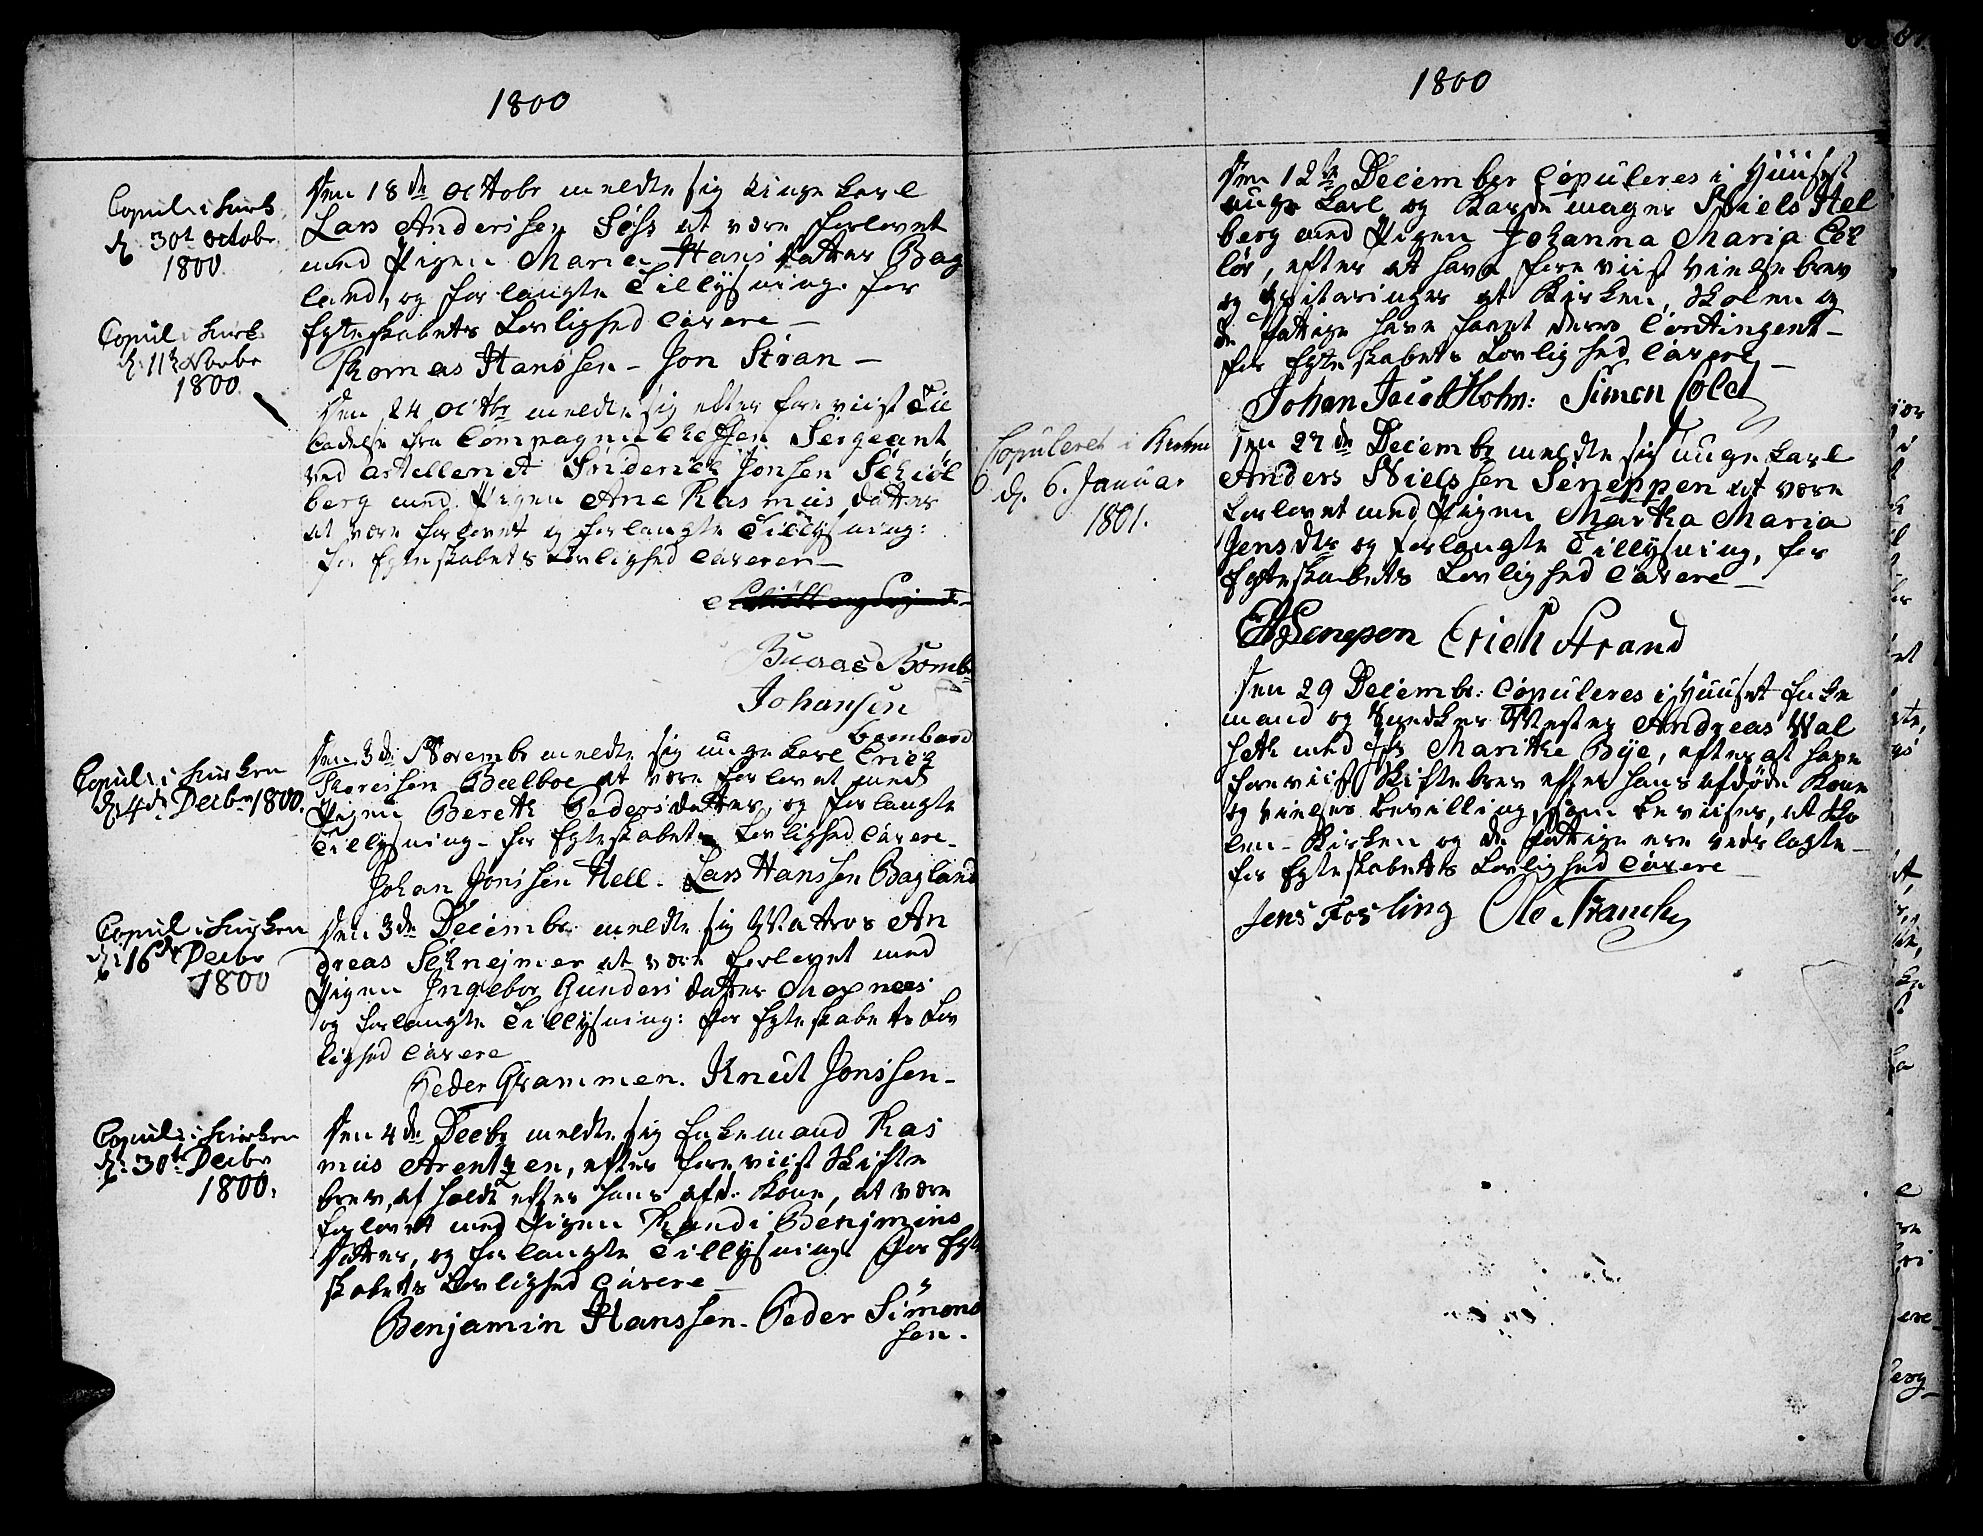 1800
Copul: i Kirk
d: 30t octobr
1800.
Den 18de octobr meldte sig unge karl
Lars Andersen Søhs at være forlovet
med Pigen Maria Hans datter Bag
land, og forlangte Tillysning. for
Egteskabets Lovlighed Cavere —
Thomas Hanssen — Jon Stran —
Copul i Kirk
d: 11te Novbr
1800.
Den 24 octbr meldte sig efter foreviist Til
ladelse fra Compagnie Cheffen Sergeant
ved Artelleriet Friderich Jonsen Schiøl
berg med Pigen Ane Rasmus datter
at være forlovet og forlangte Tillysning:
for Egteskabets Lovlighed Caveren —
Buaas Bomb
Johansen
bombard
Copul: i Kirken
d: 4de Decbr 1800.
Den 3de Novembr meldte sig unge karl Erich
Thoresen Beelboe at være forlovet med
Pigen Bereth Peders datter, og forlangte
Tillysning — for Egteskabets Lovlighed Cavere —
Johan Jonssen Hell. Lars Hanssen Bagland
Copul i Kirken
d: 16de Decbr
1800
Den 3de Decembr meldte sig Matros An
dreas Schnejmer at være forlovet med
Pigen Ingebor Gunders datter Moxnees
og forlangte Tillysning: for Egteskabets Lov
lighed Cavere
Peder Grammen. Knut Jonssen —
Copul: i Kirken
d: 30te Decbr
1800.
Den 4de Decbr meldte sig Enkemand Ras
mus Arentzen, efter foreviist Skifte
brev, af holdt efter hans afd: Kone, at være
forlovet med Pigen Randi Benjmins
datter, og forlangte Tillysning. for Egte
skabets Lovlighed Cavere —
Benjamin Hanssen. Peder Simons
sen.
1800
Den 12te December Copuleres i Huuset
unge karl og Kardemager Niels Hel
berg med Pigen Johanna Maria Coh
lør, efter at have foreviist Vielsebrev
og Qviteringer at Kirken, Skolen og
de fattige have faaet deres Contingent —
for Egteskabets Lovlighed Cavere —
Johan Jacob Holm: Simon Sølet
Copuleret i Kirken
d. 6. Januar
1801.
Den 27de Decembr meldte sig unge karl
Anders Nielssen Seneppen at være
forlovet med Pigen Martha Maria
Jensdtr og forlangte Tillysning, for
Egteskabets Lovlighed Cavere —
Senepon Erich Strand
Den 29 Decembr: Copuleres i Huuset Enke
mand og Snedker Mester Andreas Wal
seth med Jfr Marithe Bye, efter at have
foreviist Skiftebrev efter hans afdøde Kone
og vielses bevilling, som beviiser, at Sko
len — Kirken og de fattige ere vederlagte —
for Egteskabets Lovlighed Cavere —
Jens Fosling Ole Franck